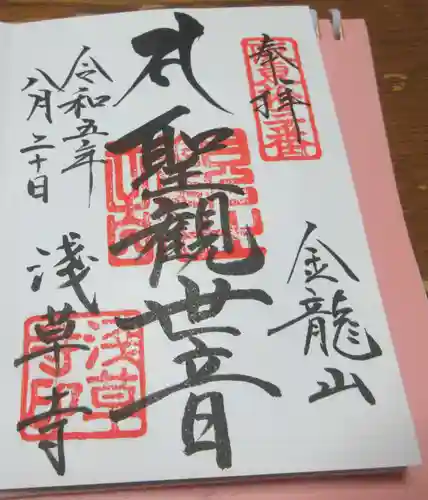 奉拝
金龍山
聖観世音
令和五年
八月二十日
浅草寺